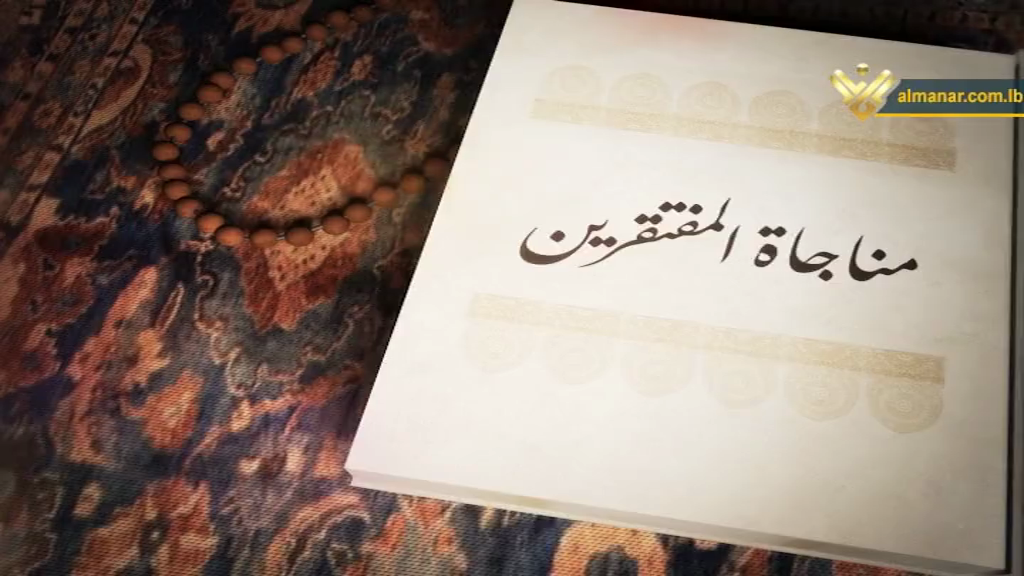 almanar.com.lb
مناجاة المفتقرين